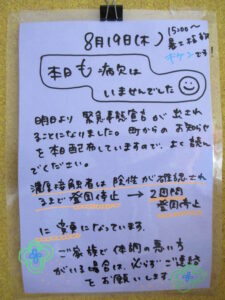 8月19日(木)
15:00〜
ホケンです!
本日も病欠は
いませんでした
明日より 緊急事態宣言が出され
ることになりました。町からのお知らせ
を本日配布していますので、よく読ん
でください。
濃厚接触者は陰性が確認され
るまで登園停止 → 2週間
登園停止
に変更になっています。
ご家族で体調の悪い方
がいる場合は、必ずご連絡
をお願いします。